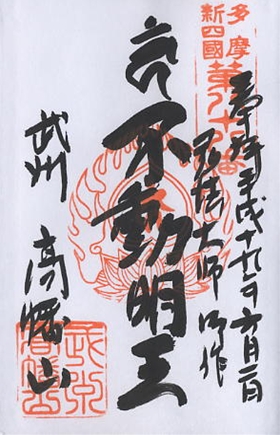 多摩
新四國
第八十八番
奉拝 平成十九年六月二日
弘法大師御作
不動明王
武州 高幡山